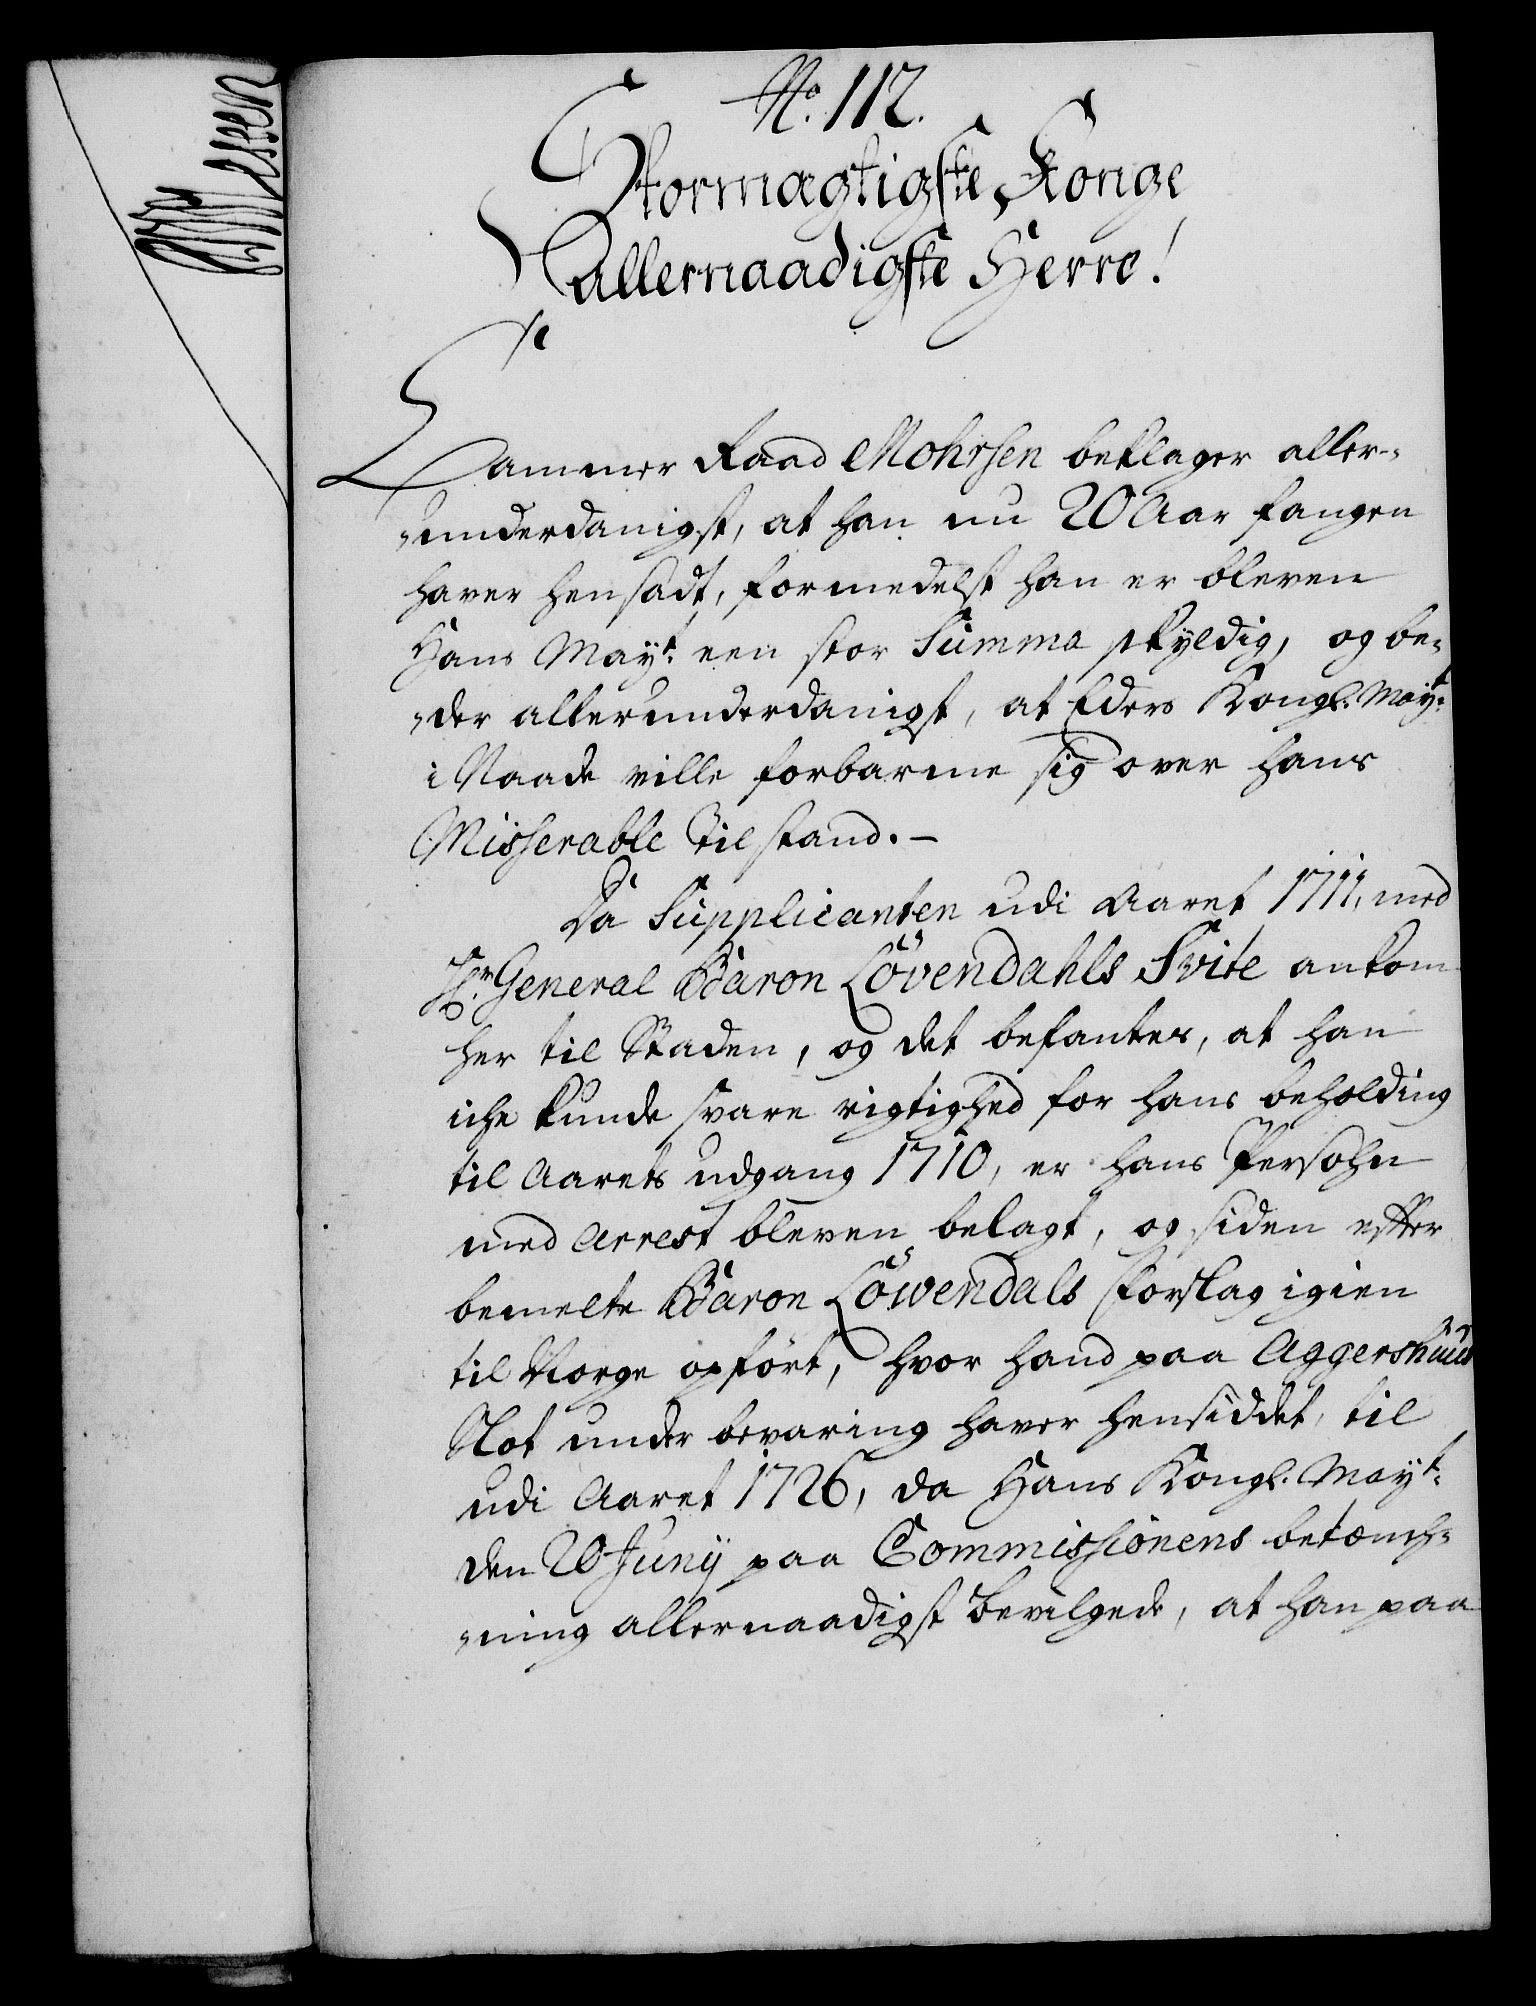 No. 112.
Stormægtigste Konge
Allernaadigste Herre!
Cammer Raad Mohrsen beklager aller-
underdanigst, at han nu 20 Aar fangen
haver hensadt, formedelst han er bleven
Hans Mayt: een stor Summa skyldig, og be-
der allerunderdanigst, at Eders Kongl. Mayt:
i Naade ville forbarme sig over hans
Misserable Tilstand. -
Da Supplicanten udi Aaret 1711, med
Hr. General Baron Lövendahls Svite ankom
her til Staden, og det befantes, at han
iche kunde svare rigtighed for hans beholding
til Aarets udgang 1710, er hans Persohn
med Arrest bleven belagt, og siden effter
bemelte Baron Löwendals Forslag igien
til Norge opført, hvor hand paa Aggershuus
Slot under bevaring haver hensiddet, til
udi Aaret 1726, da Hans Kongl. Mayt:
den 20 Junij paa Commissionens betænch-
ning allernaadigst bevilgede, at han paa